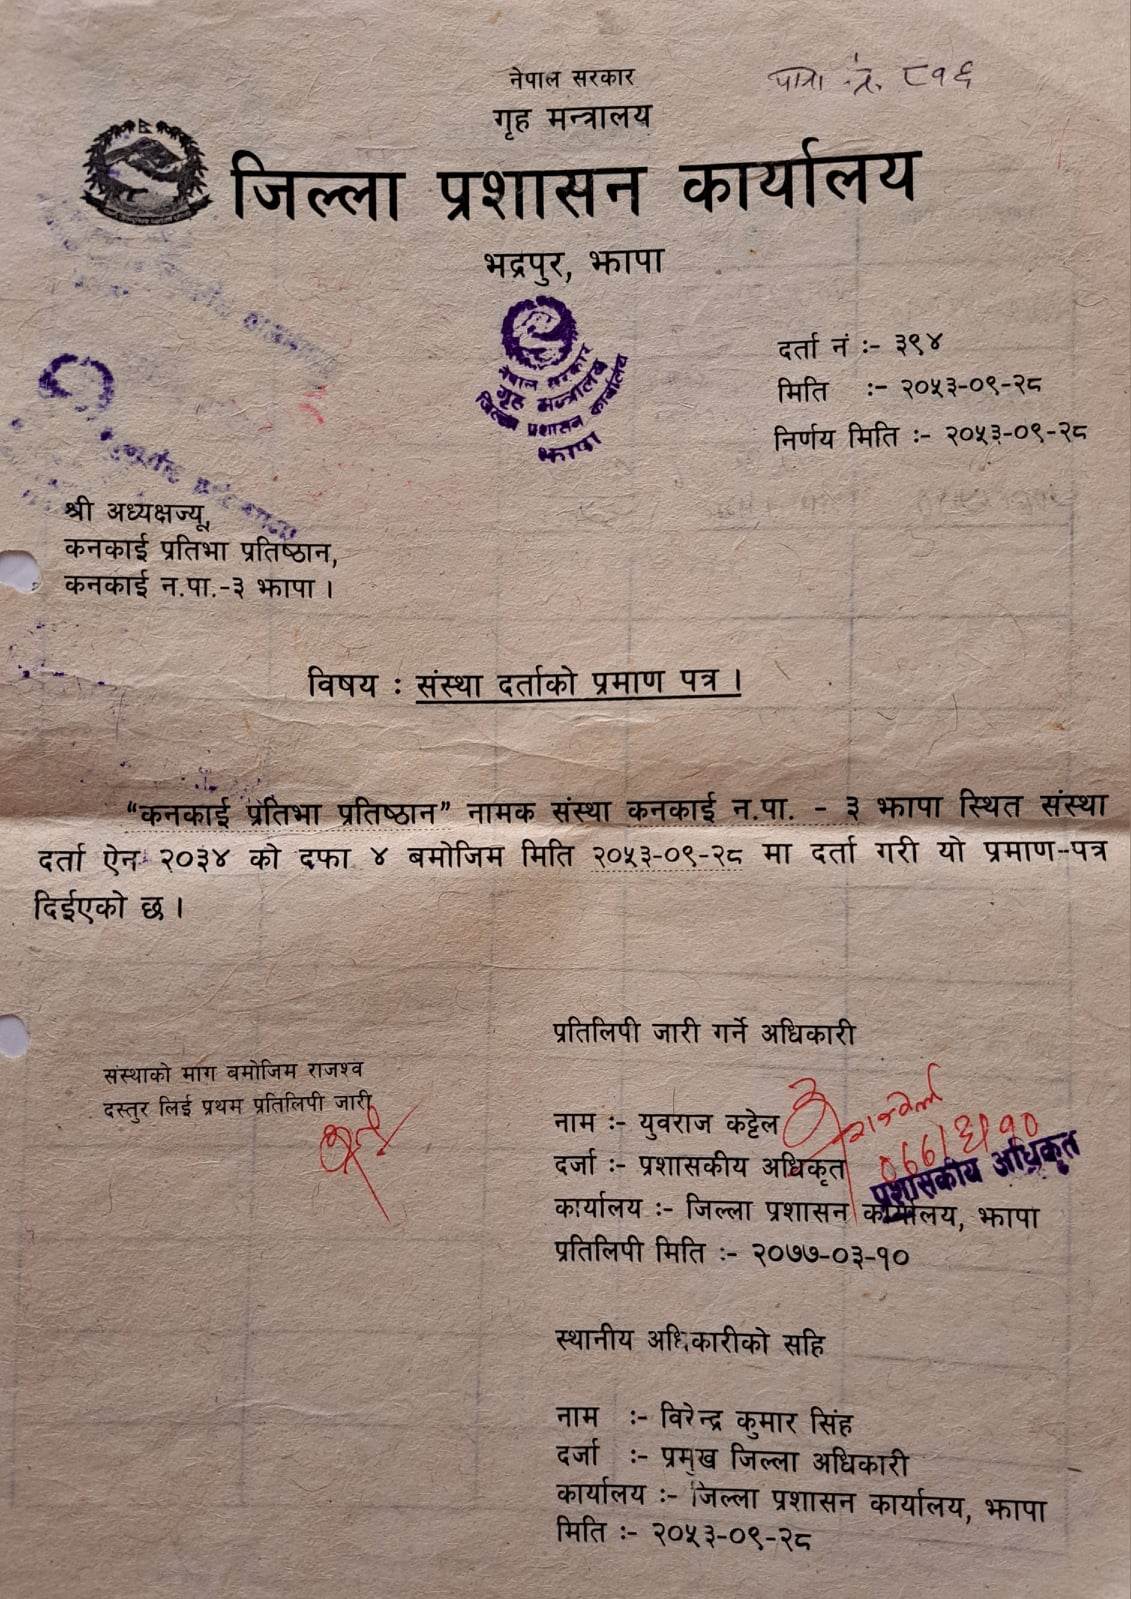 नेपाल सरकार
गृह मन्त्रालय
८१६
जिल्ला प्रशासन कार्यालय
भद्रपुर, झापा
नेपाल सरकार
गृह मन्त्रालय
जिल्ला प्रशासन कार्यालय
झापा
दर्ता नं :- ३९४
मिति :- २०५३-०९-२८
निर्णय मिति :- २०५३-०९-२८
श्री अध्यक्षज्यू,
कनकाई प्रतिभा प्रतिष्ठान,
कनकाई न.पा.-३ झापा ।
विषय : संस्था दर्ताको प्रमाण पत्र ।
“कनकाई प्रतिभा प्रतिष्ठान” नामक संस्था कनकाई न.पा. - ३ झापा स्थित संस्था
दर्ता ऐन २०३४ को दफा ४ बमोजिम मिति २०५३-०९-२८ मा दर्ता गरी यो प्रमाण-पत्र
दिईएको छ ।
प्रतिलिपी जारी गर्ने अधिकारी
संस्थाको माग बमोजिम राजश्व
दस्तुर लिई प्रथम प्रतिलिपी जारी
नाम :- युवराज कट्टेल
दर्जा :- प्रशासकीय अधिकृत
प्रशासकीय अधिकृत
कार्यालय :- जिल्ला प्रशासन कार्यालय, झापा
प्रतिलिपी मिति :- २०७७-०३-१०
स्थानीय अधिकारीको सहि
नाम :- विरेन्द्र कुमार सिंह
दर्जा :- प्रमुख जिल्ला अधिकारी
कार्यालय :- जिल्ला प्रशासन कार्यालय, झापा
मिति :- २०५३-०९-२८